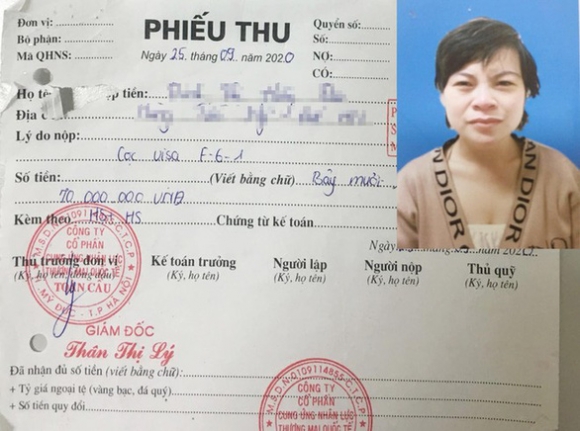 Đơn vị:
Bộ phận:
Mã QHNS:
PHIẾU THU
Ngày 25 tháng 09 năm 2020
Quyển số:
Số:
NỢ:
CÓ:
Họ tê
tiền:
Địa c
Lý do nộp:
Cọc visa E-6-1
Số tiền: (Viết bằng chữ) Bảy mươi
70.000.000 VNĐ
Kèm theo HS Chứng từ kế toán
Ngày
Thủ trưởng đơn vị
(Ký, họ tên, đóng dấu)
Kế toán trưởng
(Ký, họ tên)
Người lập
(Ký, họ tên)
Người nộp
(Ký, họ tên)
Thủ quỹ
(Ký, họ tên)
CÔNG TY
CỔ PHẦN
CUNG ỨNG NHÂN LỰC
THƯƠNG MẠI QUỐC TẾ
TOÀN CẦU
MỸ ĐỨC - T.P HÀ NỘI
GIÁM ĐỐC
Thân Thị Lý
Đã nhận đủ số tiền (viết bằng chữ):
+ Tỷ giá ngoại tệ (vàng bạc, đá quý)
+ Số tiền quy đổi
M.S.D.N:0109114855-C.T.C.P
CÔNG TY
CỔ PHẦN
CUNG ỨNG NHÂN LỰC
THƯƠNG MẠI QUỐC TẾ
AN DIOR
DIOR